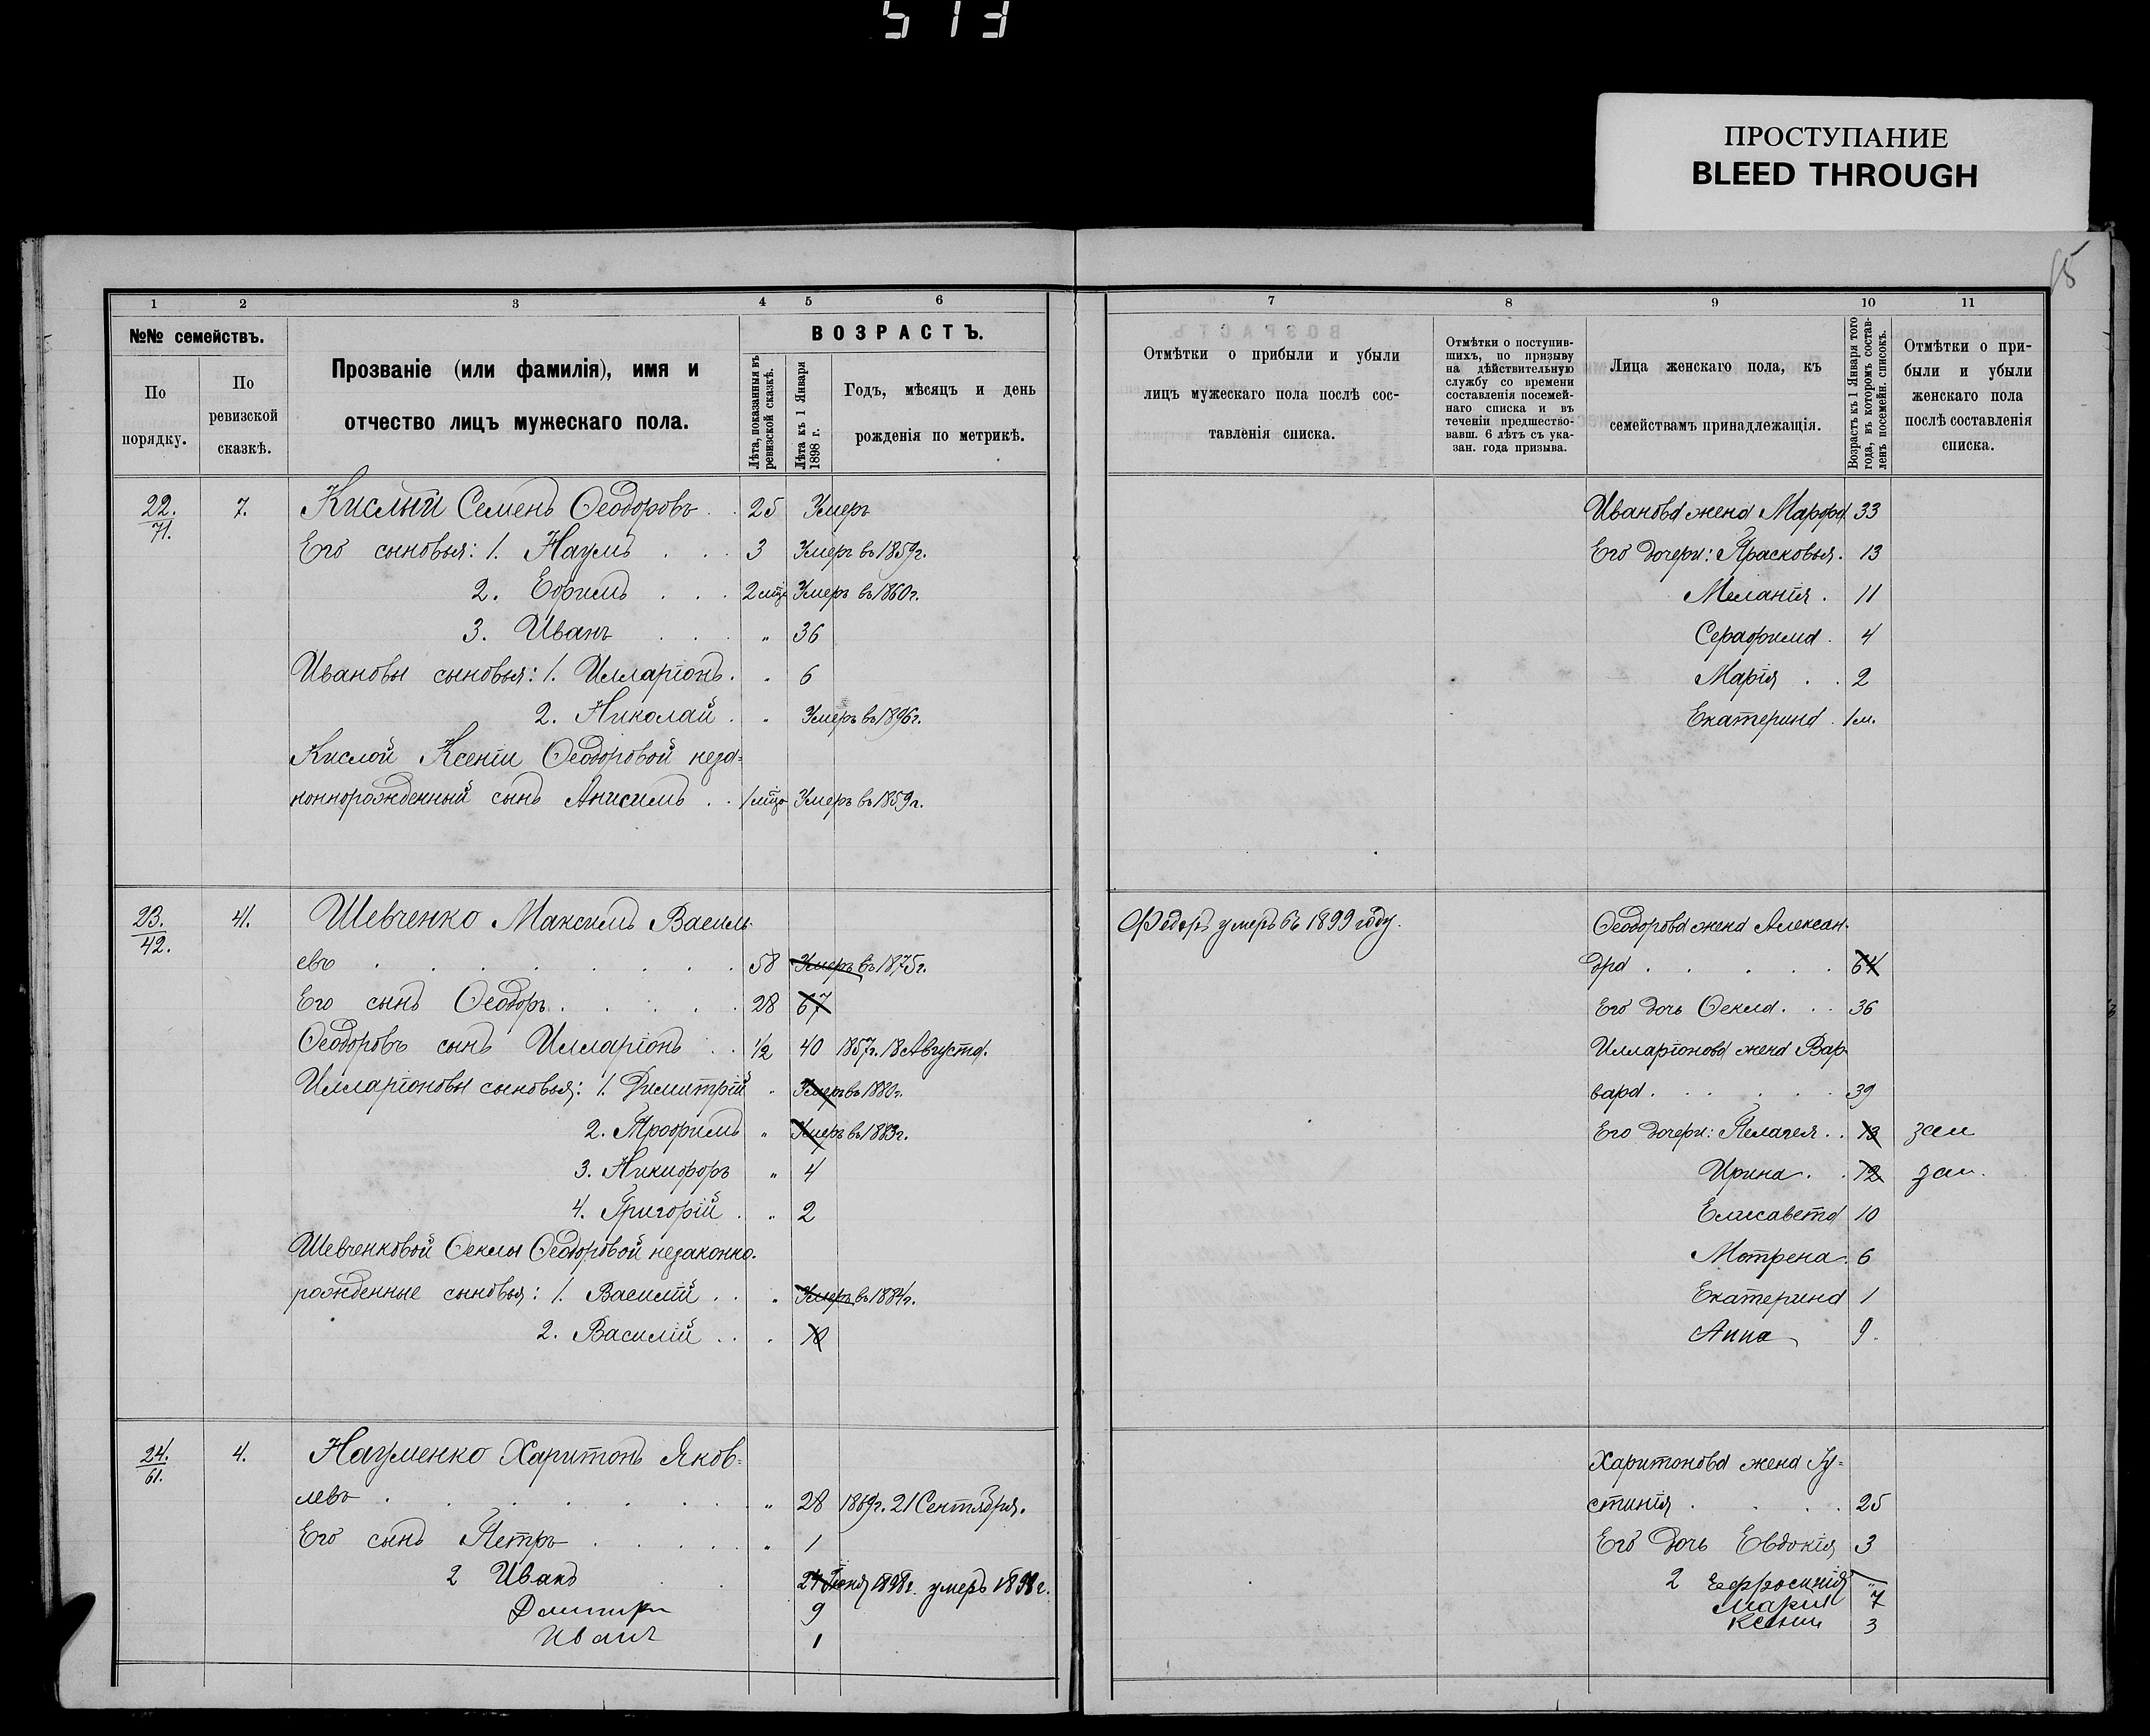 513
ПРОСТУПАНИЕ
BLEED THROUGH
1 2 3 4 5 6
№№ семействъ.
По порядку.
По ревизской сказкѣ.
Прозваніе (или фамилія), имя и
отчество лицъ мужескаго пола.
ВОЗРАСТЪ.
Лѣта, показанныя въ ревизской сказкѣ.
Лѣта къ 1 Января 1898 г.
Годъ, мѣсяцъ и день
рожденія по метрикѣ.
7 8 9 10 11
Отмѣтки о прибыли и убыли
лицъ мужескаго пола послѣ сос-
тавленія списка.
Отмѣтки о поступив-
шихъ, по призыву
на дѣйствительную
службу со времени
составленія посемей-
наго списка и въ
теченіи предшество-
вавш. 6 лѣтъ съ ука-
зан. года призыва.
Лица женскаго пола, къ
семействамъ принадлежащія.
Возрастъ къ 1 Января того
года, въ которомъ состав-
ленъ посемейн. списокъ.
Отмѣтки о при-
были и убыли
женскаго пола
послѣ составленія
списка.
22. 71. 7. Кислый Семенъ Ѳеодоровъ . . 25 Умеръ
Его сыновья: 1. Наумъ . . . 3 Умеръ въ 1859г.
2. Ефимъ . . . 2 мѣс Умеръ въ 1860г.
3. Иванъ . . . " 36
Ивановы сыновья: 1. Илларіонъ. " 6
2. Николай . " Умеръ въ 1896г.
Кислой Ксеніи Ѳеодоровой неза=
коннорожденный сынъ Анисимъ . . 1 мѣс Умеръ въ 1859г.
Иванова жена Марфа. 33
Его дочери: Прасковья. 13
Меланія . 11
Серафима . 4
Марія . . 2
Екатерина . 1 м.
23. 42. 41. Шевченко Максимъ Василь-
евъ . . . . . . . . 58 Умеръ въ 1875г.
Его сынъ Ѳеодоръ . . . . . 28 67
Ѳеодоровъ сынъ Илларіонъ . . 1/2 40 1857г. 18 Августа.
Илларіоновы сыновья: 1. Димитрій " Умеръ въ 1880г.
2. Трофимъ " Умеръ въ 1883г.
3. Никифоръ " 4
4. Григорій . " 2
Шевченковой Ѳеклы Ѳеодоровой незаконно-
рожденные сыновья: 1. Василій . . " Умеръ въ 1884г.
2. Василій . . " 10
Федоръ умеръ въ 1899 году.
Ѳеодорова жена Алексан-
дра . . . . . . 64
Его дочь Ѳекла. . . 36
Илларіонова жена Вар-
вара . . . . . . 39
Его дочери: Пелагея. . 13 зам
Ирина . . 12 зам.
Елисавета 10
Мотрена. 6
Екатерина 1
Анна 9.
24. 61. 4. Науменко Харитонъ Яков=
левъ . . . . . . . . " 28 1869г. 21 Сентября.
Его сынъ Петръ . . . . . " 1
2 Иванъ 24 Іюня 1898г. умеръ 1898г.
Дмитри 9
Иванъ 1
Харитонова жена Іу=
стинія . . . . . 25
Его дочь Евдокія 3
2 Ефросинія "
Марія 7
Ксенія 3